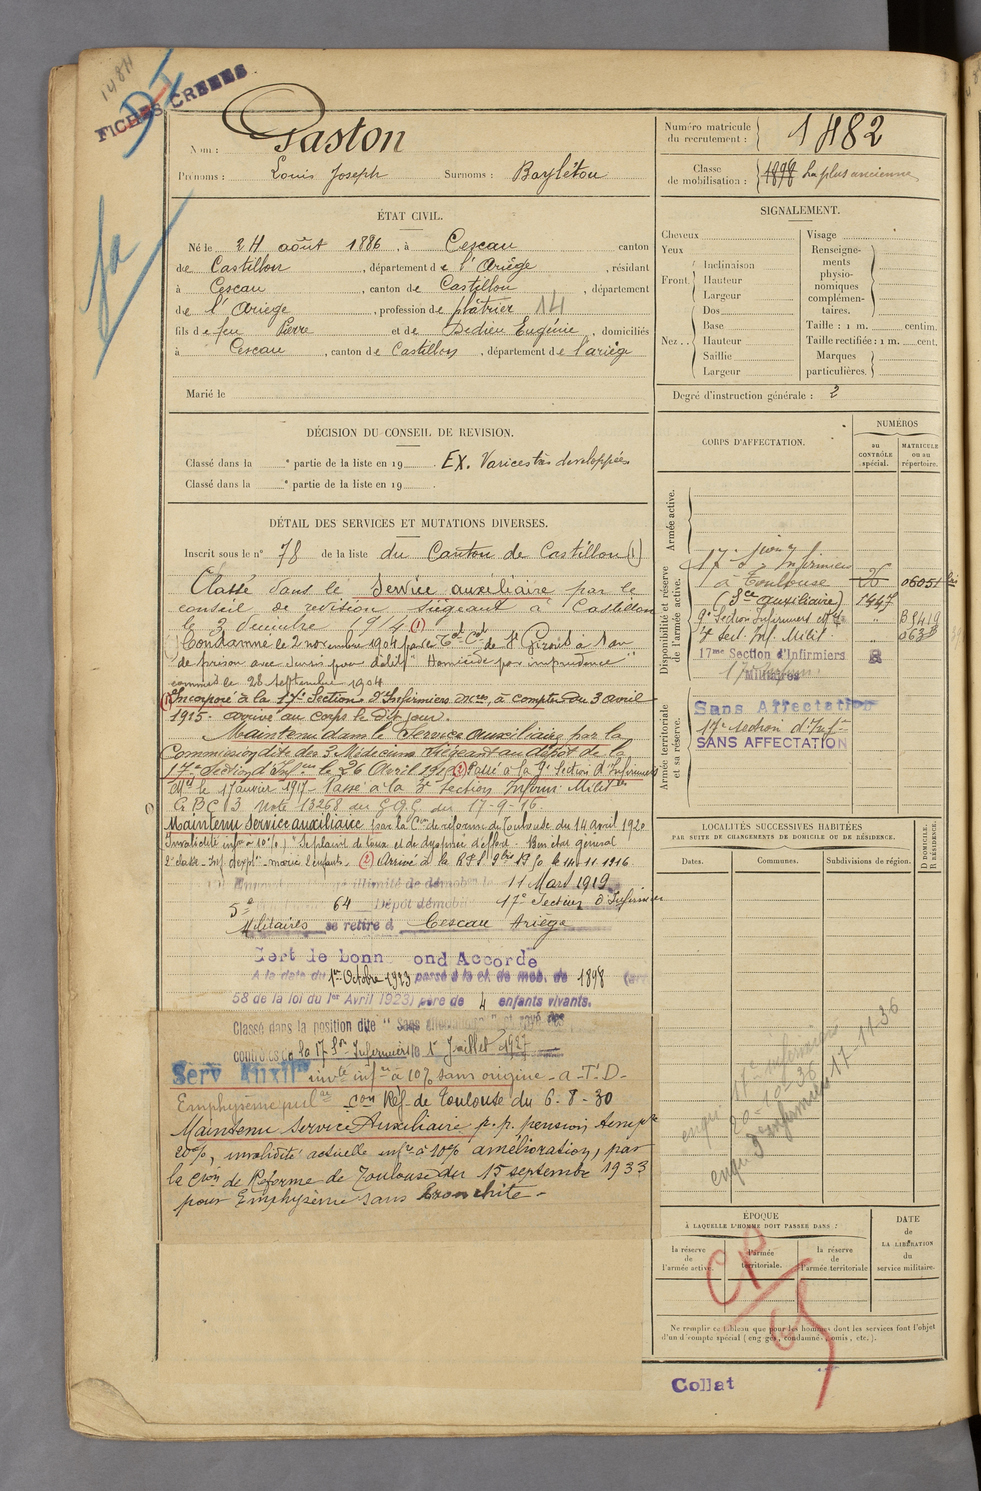 14811
D-I
FICHES CRÉÉES
Nom : Gaston
Prénoms : Louis Joseph Surnoms : Baylétou
Numéro matricule du recrutement : 1482
Classe de mobilisation : 1898 La plus ancienne
ÉTAT CIVIL.
Né le 24 août 1886, à Cescau canton
de Castillon, département de l'Ariège, résidant
à Cescau, canton de Castillon, département
de l'Ariège, profession de plâtrier 14
fils de feu Pierre et de Dedieu Eugénie, domiciliés
à Cescau, canton de Castillon, département de l'ariège
Marié le
SIGNALEMENT.
Cheveux
Yeux
Front. Inclinaison
Hauteur
Largeur
Nez.. Dos
Base
Hauteur
Saillie
Largeur
Visage
Renseignements physionomiques complémentaires.
Taille : 1 m. centim.
Taille rectifiée : 1 m. cent.
Marques particulières.
Degré d'instruction générale : 2
DÉCISION DU CONSEIL DE REVISION.
Classé dans la e partie de la liste en 19 . EX. Varices très developpées
Classé dans la e partie de la liste en 19 .
DÉTAIL DES SERVICES ET MUTATIONS DIVERSES.
Inscrit sous le n° 78 de la liste du Canton de Castillon (1)
Classé dans le Service auxiliaire par le
conseil de revision siégeant à Castillon
le 3 décembre 1914 (1)
Condamné le 2 novembre 1904 par le T al C el de St Girons à 1 an
de prison avec sursis pour délit "Homicide par imprudence"
commis le 28 Septembre 1904
(1) Incorporé à la 17e Section d'Infirmiers Mres, à compter du 3 avril
1915. arrivé au corps le dit jour.
Maintenu dans le Service auxiliaire par la
Commission dite des 3 Médecins siégeant au dépôt de la
17e Section d'Inf. res le 26 Avril 1916 (3) Passé à la 9e Section d'Infirmiers
M res le 1 janvier 1917 - Passé à la 3e Section Infirm. Milit res
G.B.C 3 Note 13268 du G.Q.G du 17-9-16.
Maintenu Service auxiliaire par la C on de réforme de Toulouse du 14 avril 1920
Invalidité inf re à 10%) Se plaint de toux et de dyspnée d'effort. Bon état général
(2) Arrivé à le 14.11.1916
illimité de démob le 11 Mars 1919
5e 64 Dépôt démobil 17e Section d'Infirmiers
Militaires se retire à Cescau Ariège
Cert de bonne ond Accordé
A la date du 1er Octobre 1923 passé à la cl. de mob. de 1898 (art
58 de la loi du 1er Avril 1923) père de 4 enfants vivants.
Classé dans la position dite "Sans affectation" et rayé des
contrôles de la 17 Son Infirmiers le 1er Juillet 1927
Serv Auxil re inv té inf re à 10% sans origine - a - T.D -
Emphysème pul re con Réf - de Toulouse du 6-8-30
Maintenu Service Auxiliaire p. p. pension temp re
20%, invalidité actuelle inf re à 10% amélioration, par
la C ion de Réforme de Toulouse du 15 septembre 1933
pour Emphysème sans bronchite -
CORPS D'AFFECTATION.
NUMÉROS
au CONTRÔLE spécial.
MATRICULE ou au répertoire.
Armée active.
Disponibilité et réserve de l'armée active.
17e Son d'Infirmiers
à Toulouse
(Sce auxiliaire) 1447
9e Section Infirmiers M res " B 5419
3e Sect. Inf. Milit. "
17me Section d'Infirmiers
Militaires R
Armée territoriale et sa réserve.
Sans Affectation
17e Section d'Inf.
SANS AFFECTATION
LOCALITÉS SUCCESSIVES HABITÉES
PAR SUITE DE CHANGEMENTS DE DOMICILE OU DE RÉSIDENCE.
Dates. Communes. Subdivisions de région.
D DOMICILE. R RÉSIDENCE.
17e infirmiers
20-10-36
17-11-36
ÉPOQUE
À LAQUELLE L'HOMME DOIT PASSER DANS :
la réserve de l'armée active.
l'armée territoriale.
la réserve de l'armée territoriale
DATE de LA LIBÉRATION du service militaire.
CP
Ne remplir ce tableau que pour les hommes dont les services font l'objet
d'un décompte spécial (engagés, condamnés, omis, etc.).
Collat